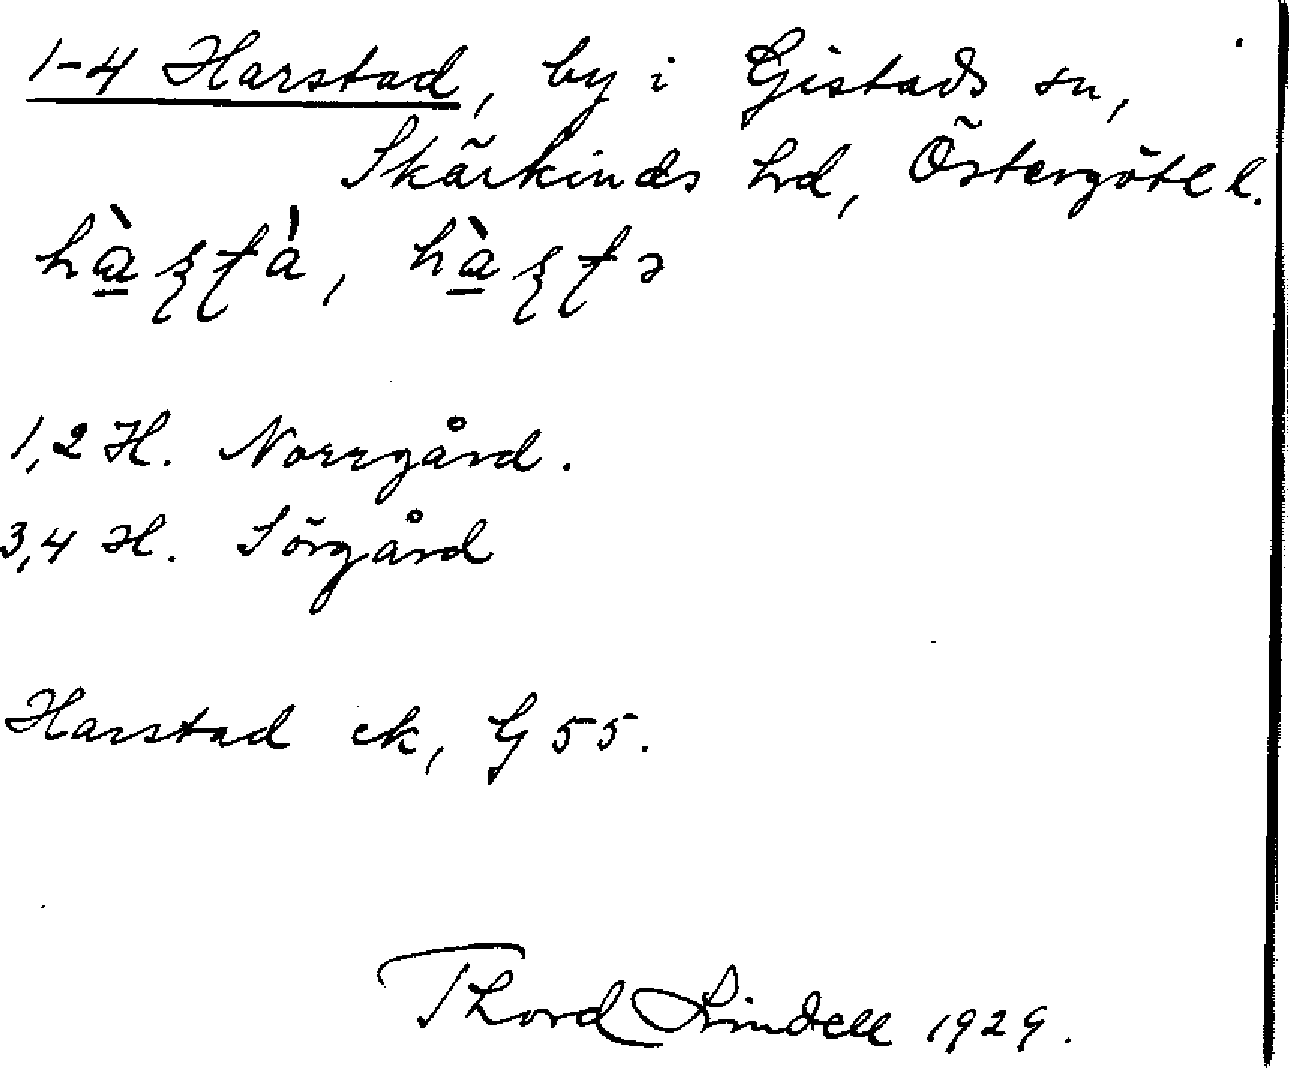 1-4 Harstad, by i Gistads sn,
Skärkinds hd, Östergötl l.
hàʂʈà, hàʂʈə
1,2 H. Norrgård.
3,4 H. Sörgård
Harstad ek, G 55.
Thord Lindell 1929.